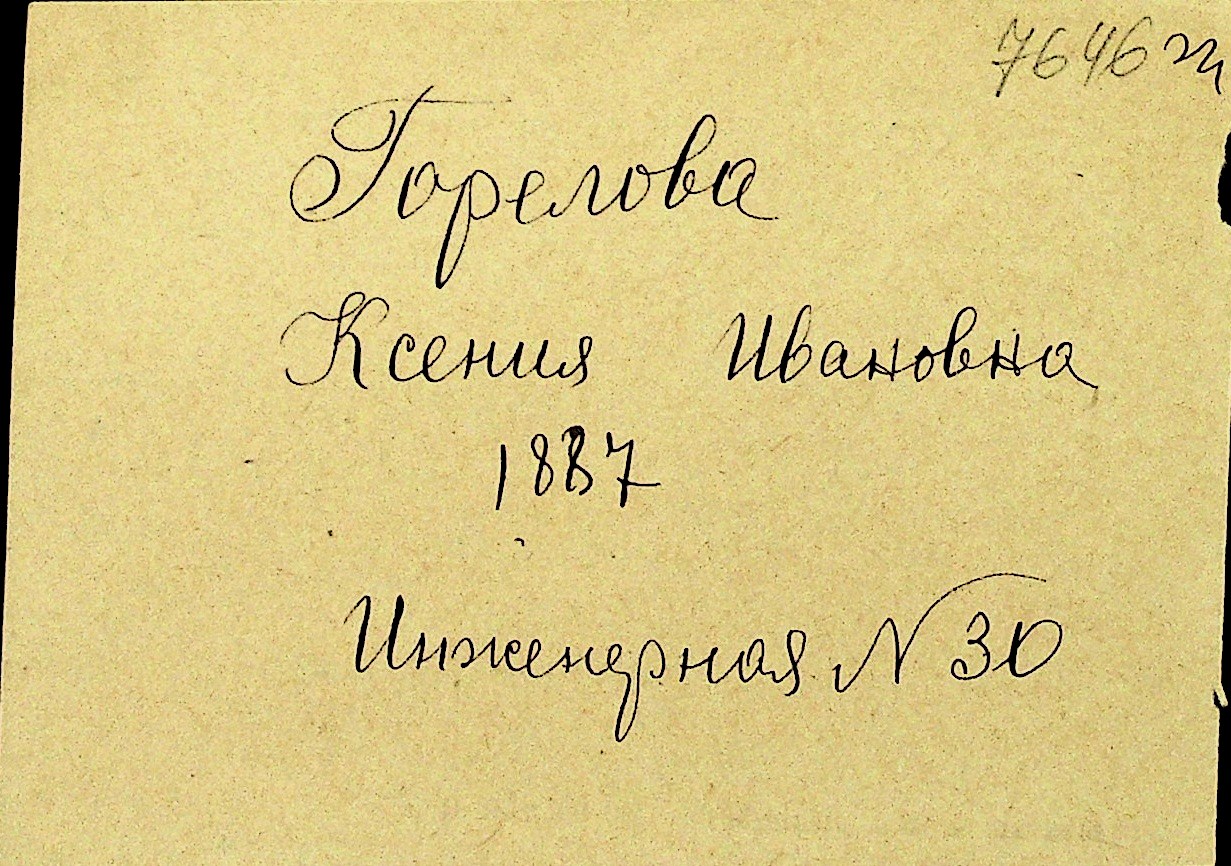 7646 ж
Горелова
Ксения Ивановна
1887
Инженерная N 30